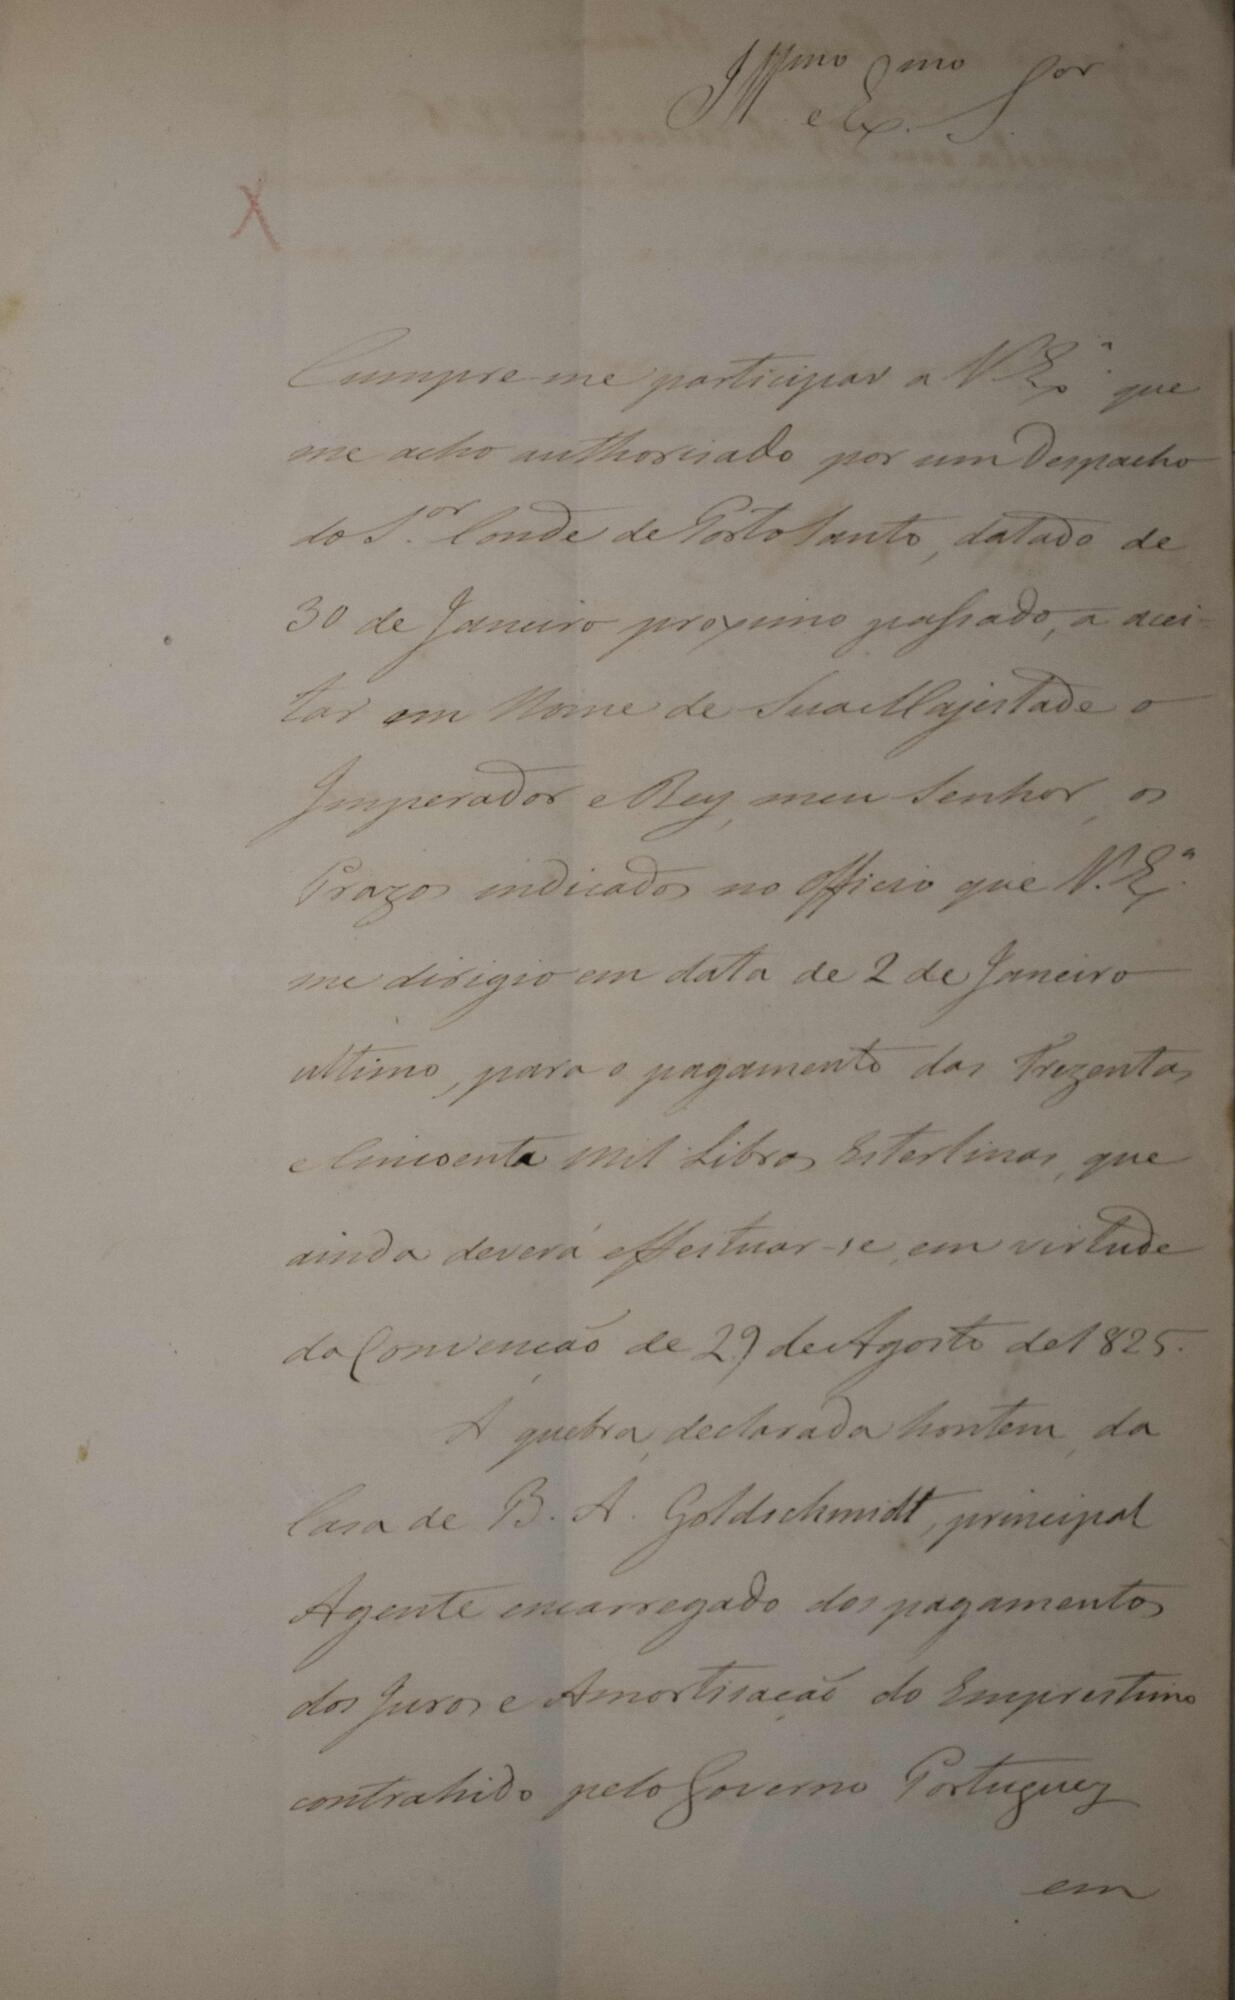 Illmo e Exmo Sor
X
Cumpre-me participar a V. Exa. que
me acho authorisado por um Despacho
do S.or Conde de Porto Santo, datado de
30 de Janeiro proximo passado, a acei-
tar em Nome de Sua Magestade o
Imperador e Rey, meu Senhor, os
Prazos indicados no Officio que V. Exa.
me dirigio em data de 2 de Janeiro
ultimo, para o pagamento das Trezentas
e Cincoenta Mil Libras Esterlinas, que
ainda deverá effectuar-se, em virtude
da Convenção de 29 de Agosto de 1825.
A quebra, declarada hontem, da
Casa de B. A. Goldschmidt, principal
Agente encarregado dos pagamentos
dos Juros e Amortisação do Emprestimo
contrahido pelo Governo Portuguez
em